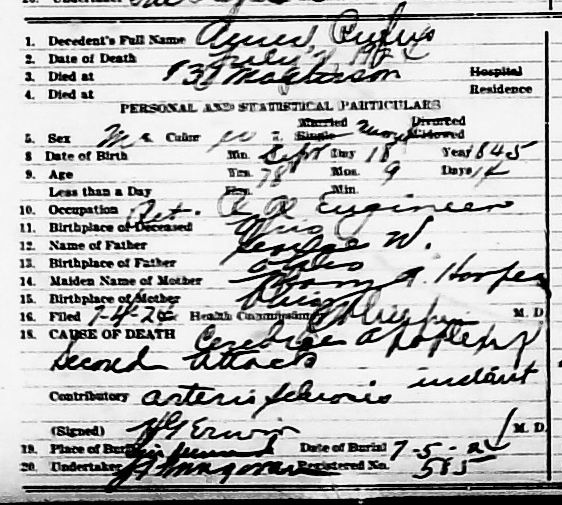 1. Decedent's Full Name Rufus
2. Date of Death July
3. Died at 837 Hospital
4. Died at Residence
PERSONAL AND STATISTICAL PARTICULARS
Married Divorced
5. Sex M 6. Color W 7. Single Widowed
8 Date of Birth Mo. Sept Day 18 Year 845
9. Age Yrs. 78 Mos. 9 Days 14
Less than a Day Hrs. Min.
10. Occupation Ret. R R Engineer
11. Birthplace of Deceased Ohio
12. Name of Father George W.
13. Birthplace of Father Ohio
14. Maiden Name of Mother A. Hooper
15. Birthplace of Mother Ohio
16. Filed 7-4-24 Health Commissioner M. D.
18. CAUSE OF DEATH Cerebral Apoplexy
second attack
instant
Contributory arterio sclerosis
(Signed) Erwin M. D.
19. Place of Burial Date of Burial 7-5-24
20. Undertaker Registered No. 585